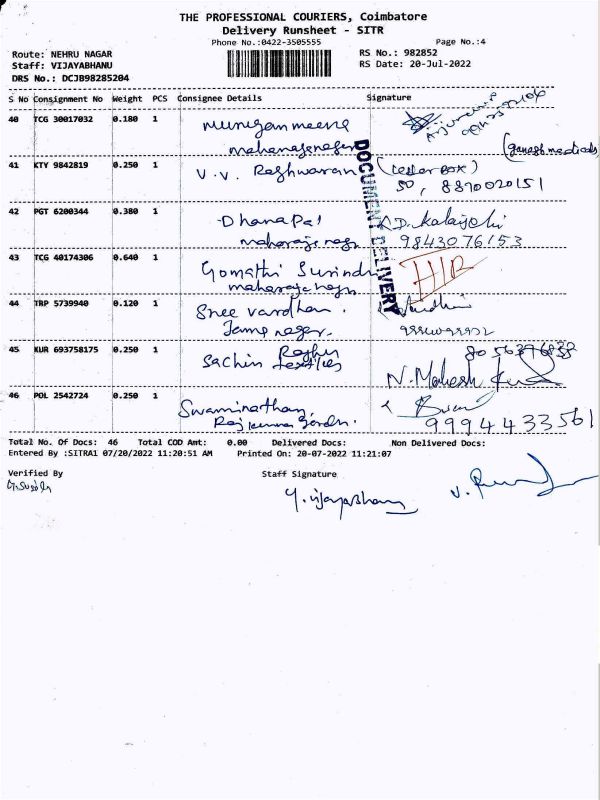 THE PROFESSIONAL COURIERS, Coimbatore
Delivery Runsheet - SITR
Phone No.:0422-3505555 Page No.:4
Route: NEHRU NAGAR RS No.: 982852
Staff: VIJAYABHANU RS Date: 20-Jul-2022
DRS No.: DCJB98285204
S No Consignment No Weight PCS Consignee Details Signature
40 TCG 30017032 0.180 1 Murugan meena
(ganesh medicals)
41 KTY 9842819 0.250 1 V.V. Raghwaran (letter box)
50, 8870020151
DOCUMENT DELIVERY
42 PGT 6200344 0.380 1 Dhanapal
9843076153
43 TCG 40174306 0.640 1 Gomathi
44 TRP 5739940 0.120 1 Sree vardhan.
Jame nagar.
45 KUR 693758175 0.250 1 Sachin textiles
N. Mahesh
46 POL 2542724 0.250 1 Swaminathan,
9994433561
Total No. Of Docs: 46 Total COD Amt: 0.00 Delivered Docs: Non Delivered Docs:
Entered By :SITRA1 07/20/2022 11:20:51 AM Printed On: 20-07-2022 11:21:07
Verified By Staff Signature